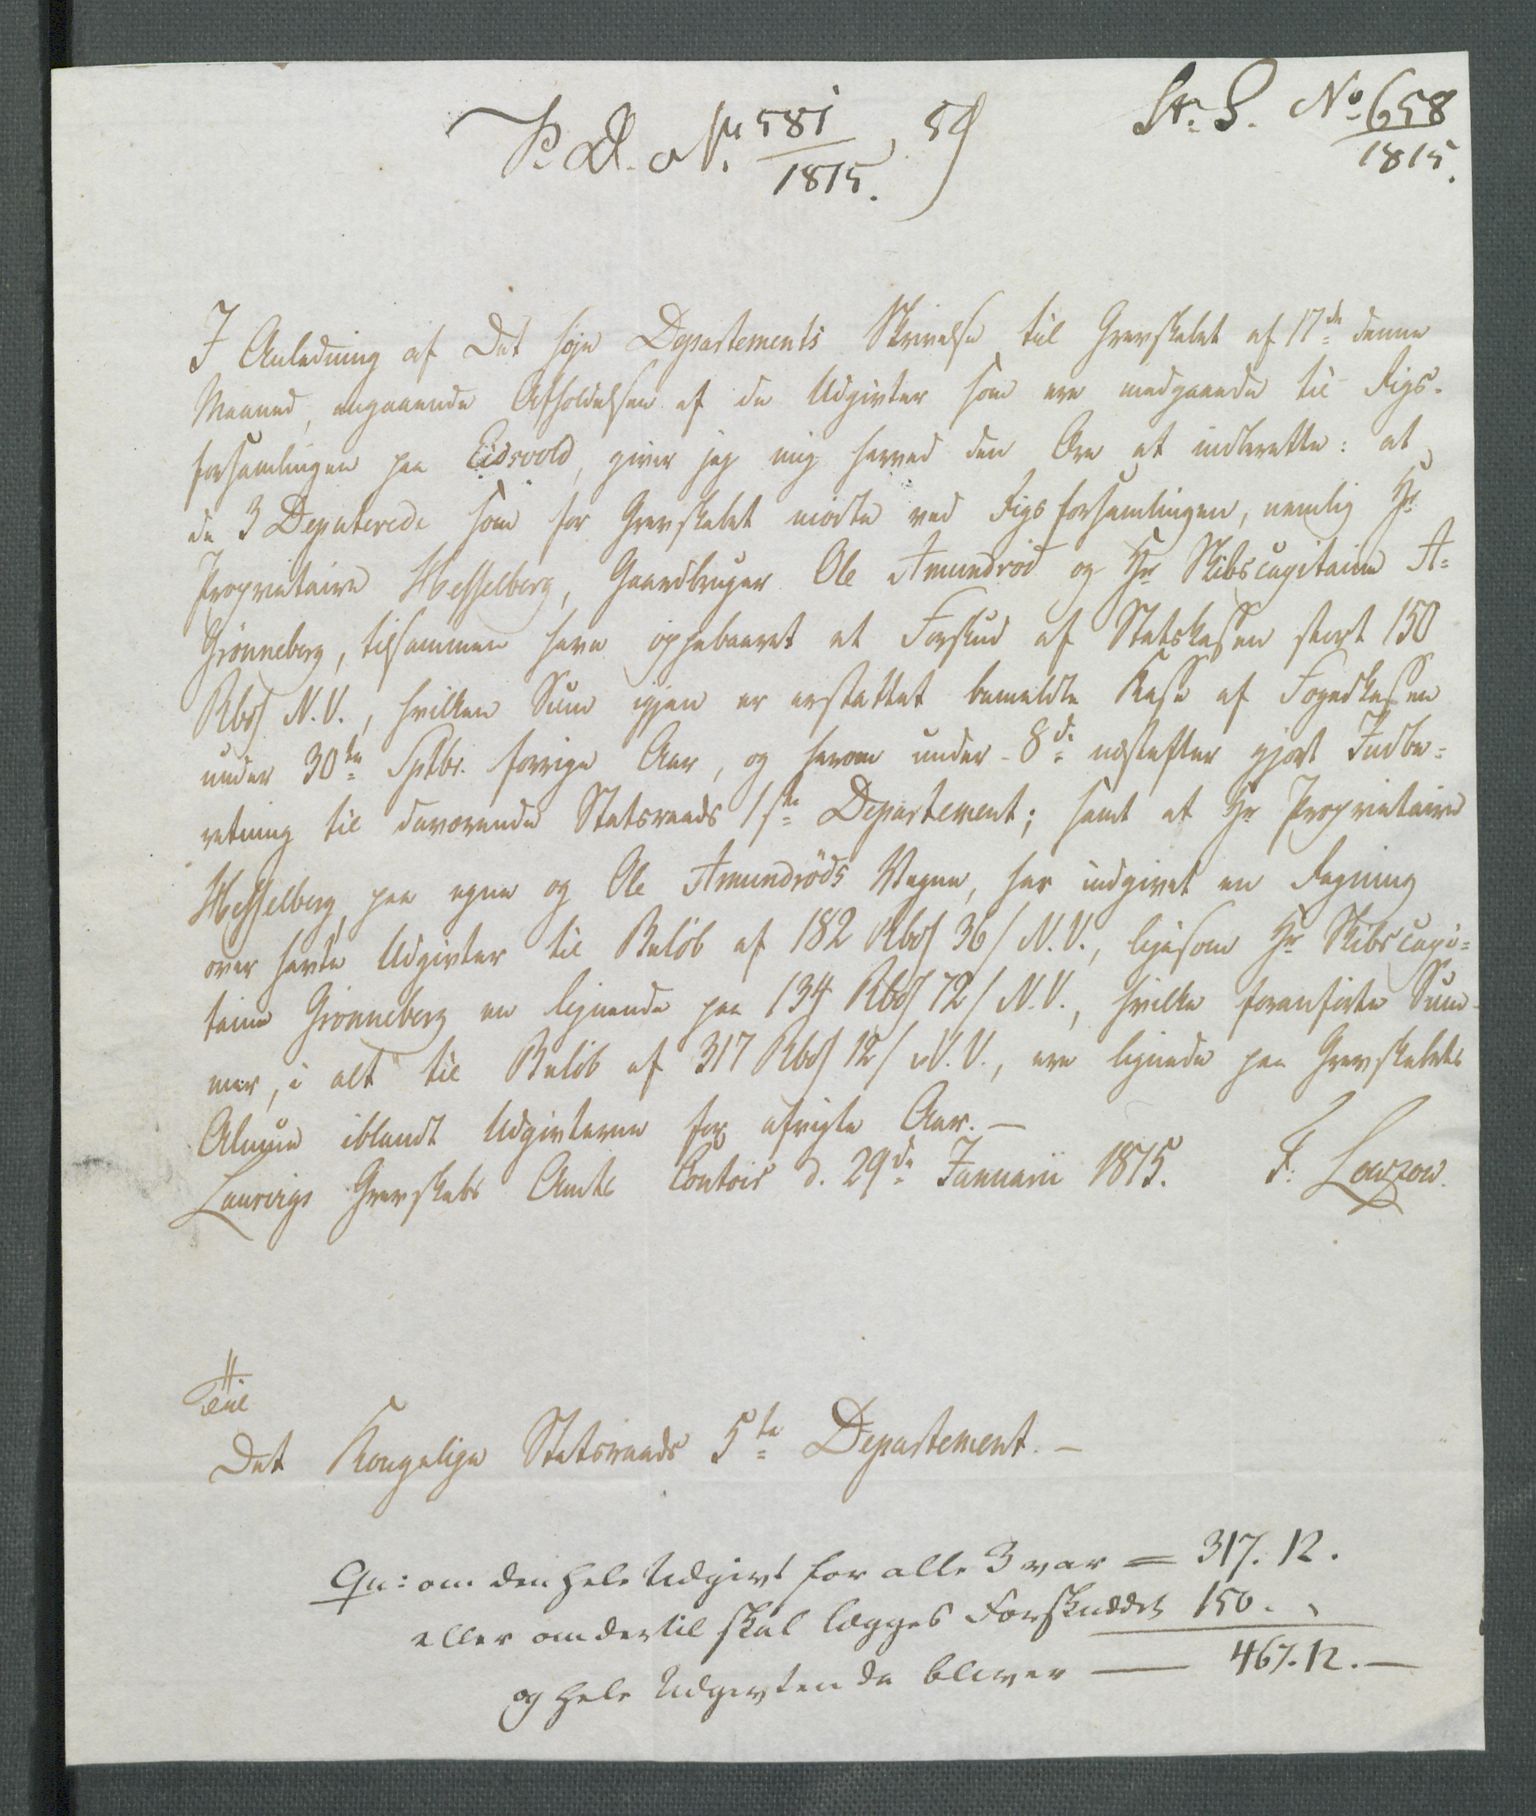 P. D. Nr. 581/1815. 59
St. S. No 658/1815.
I Anledning af Det høje Departements Skrivelse til Grevskabet af 17de denne
Maaned, angaaende Afholdelsen af de Udgivter som ere medgaaede til Rigs-
forsamlingen paa Eidsvold, giver jeg mig herved den Ære at indberette: at
de 3 Deputerede som for Grevskabet mødte ved Rigsforsamlingen, nemlig Hr
Proprietaire Hesselberg, Gaardbruger Ole Amundrød og Hr Skibscapitaine A-
Grønneberg, tilsammen have oppebaaret et Forskud af Statskassen stort 150
Rbd N.V., hvilken Sum igjen er erstattet bemeldte Kasse af Fogedkassen
under 30te Sptbr. forrige Aar, og herom under 8de næstefter gjort Indbe-
retning til daværende Statsraads 1ste Departement; samt at Hr Proprietaire
Hesselberg paa egne og Ole Amundrøds Vegne, har indgivet en Regning
over havte Udgivter til Beløb af 182 Rbd 36 s N.V., ligesom Hr Skibscapi-
taine Grønneberg en lignende paa 134 Rbd 72 s N.V., hvilke foranførte Sum-
mer, i alt til Beløb af 317 Rbd 12 s N.V., ere lignede paa Grevskabets
Almue iblandt Udgivterne for afvigte Aar. —
Laurvigs Grevskabs Amts Contoir d. 29de Januarii 1815. F. Lowzow.
Til
Det Kongelige Statsraads 5te Departement. —
Qu: om den hele Udgivt for alle 3 var = 317. 12.
eller om dertil skal lægges Forskuddet 150. „
og hele Udgivten da bliver — 467. 12. —